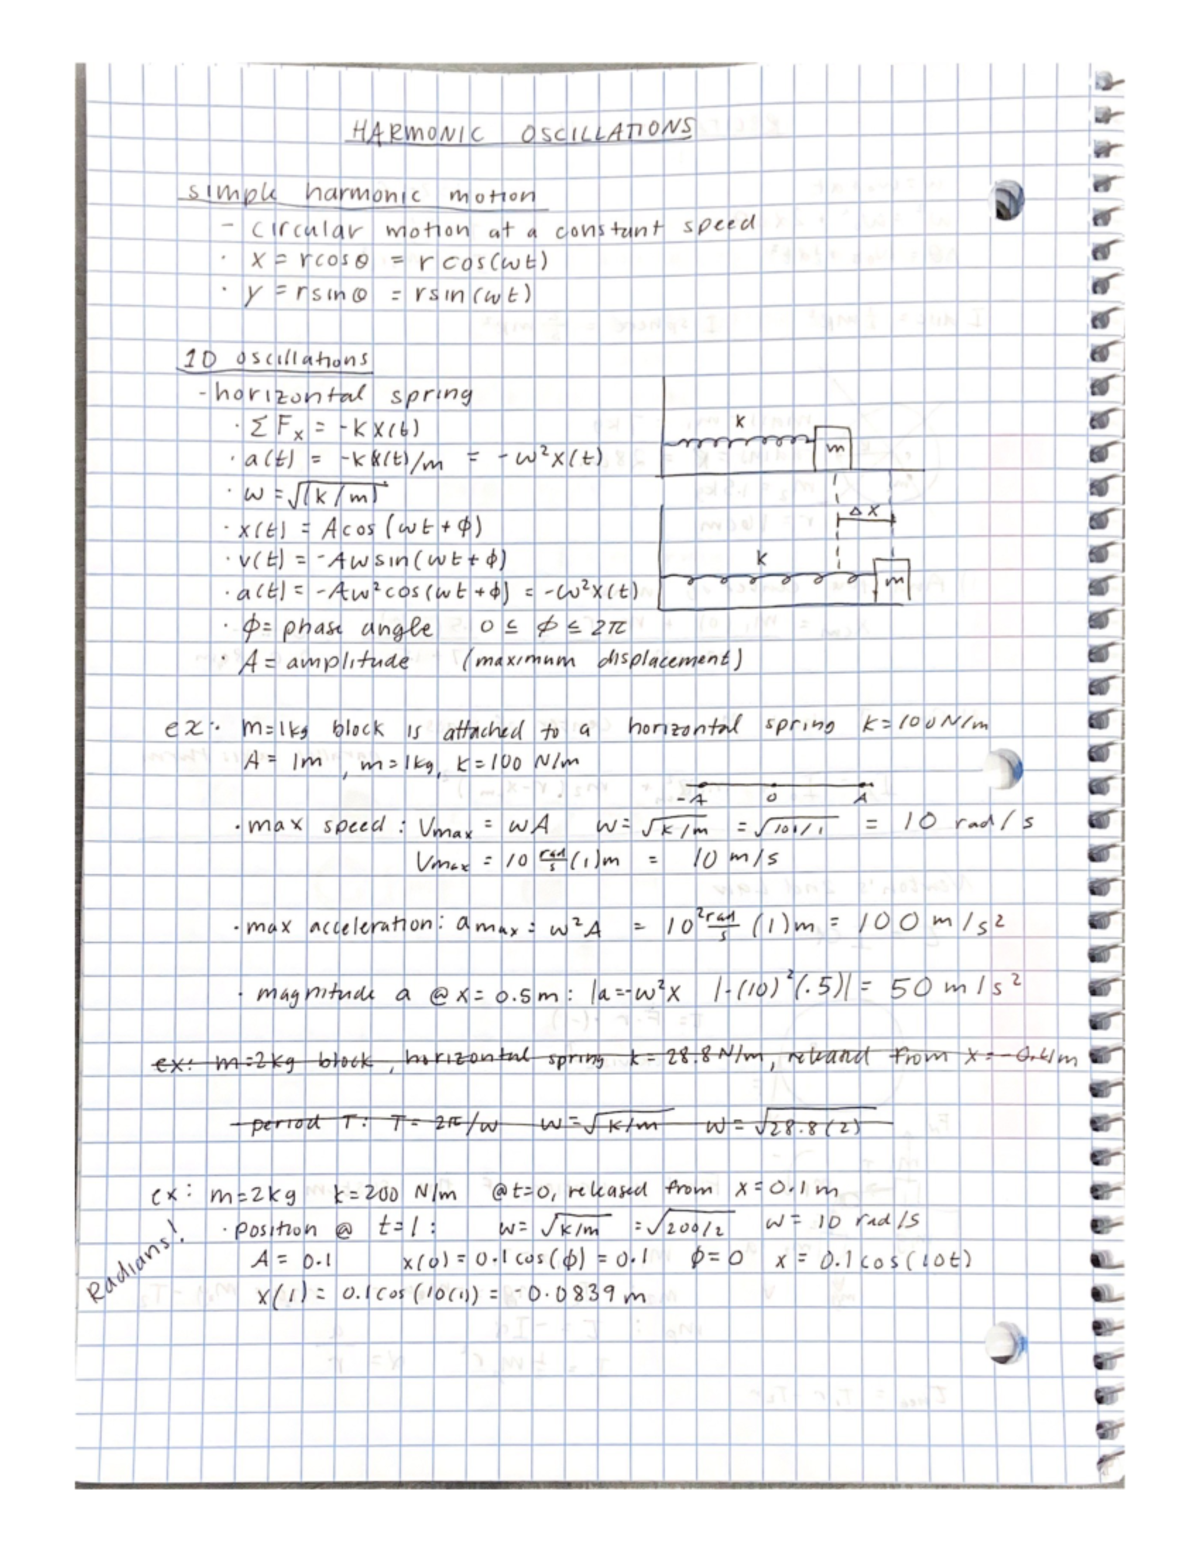 HARMONIC OSCILLATIONS
simple harmonic motion
- circular motion at a constant speed
· x = rcosθ = r cos(ωt)
· y = rsinθ = rsin(ωt)
1D oscillations
- horizontal spring
· ΣFx = -kx(t)
· a(t) = -kx(t)/m = -ω²x(t)
· ω = √(k/m)
· x(t) = Acos(ωt + ϕ)
· v(t) = -Aωsin(ωt + ϕ)
· a(t) = -Aω²cos(ωt + ϕ) = -ω²x(t)
· ϕ = phase angle 0 ≤ ϕ ≤ 2π
· A = amplitude (maximum displacement)
k
m
Δx
k
m
ex: m=1kg block is attached to a horizontal spring k=100N/m
A = 1m, m=1kg, k=100 N/m
-A 0 A
· max speed: Vmax = ωA ω = √k/m = √100/1 = 10 rad/s
Vmax = 10 rad/s (1)m = 10 m/s
· max acceleration: amax = ω²A = 10² rad/s (1)m = 100 m/s²
· magnitude a @ x = 0.5m: |a=-ω²x |-(10)²(.5)| = 50 m/s²
ex: m=2kg block, horizontal spring k = 28.8 N/m, released from x = -0.41m
period T: T = 2π/ω ω = √k/m ω = √28.8(2)
ex: m=2kg k=200 N/m @t=0, released from x=0.1m
Radians!
· position @ t=1: ω = √k/m = √200/2 ω = 10 rad/s
A = 0.1 x(0) = 0.1 cos(ϕ) = 0.1 ϕ=0 x = 0.1cos(10t)
x(1) = 0.1cos(10(1)) = -0.0839 m